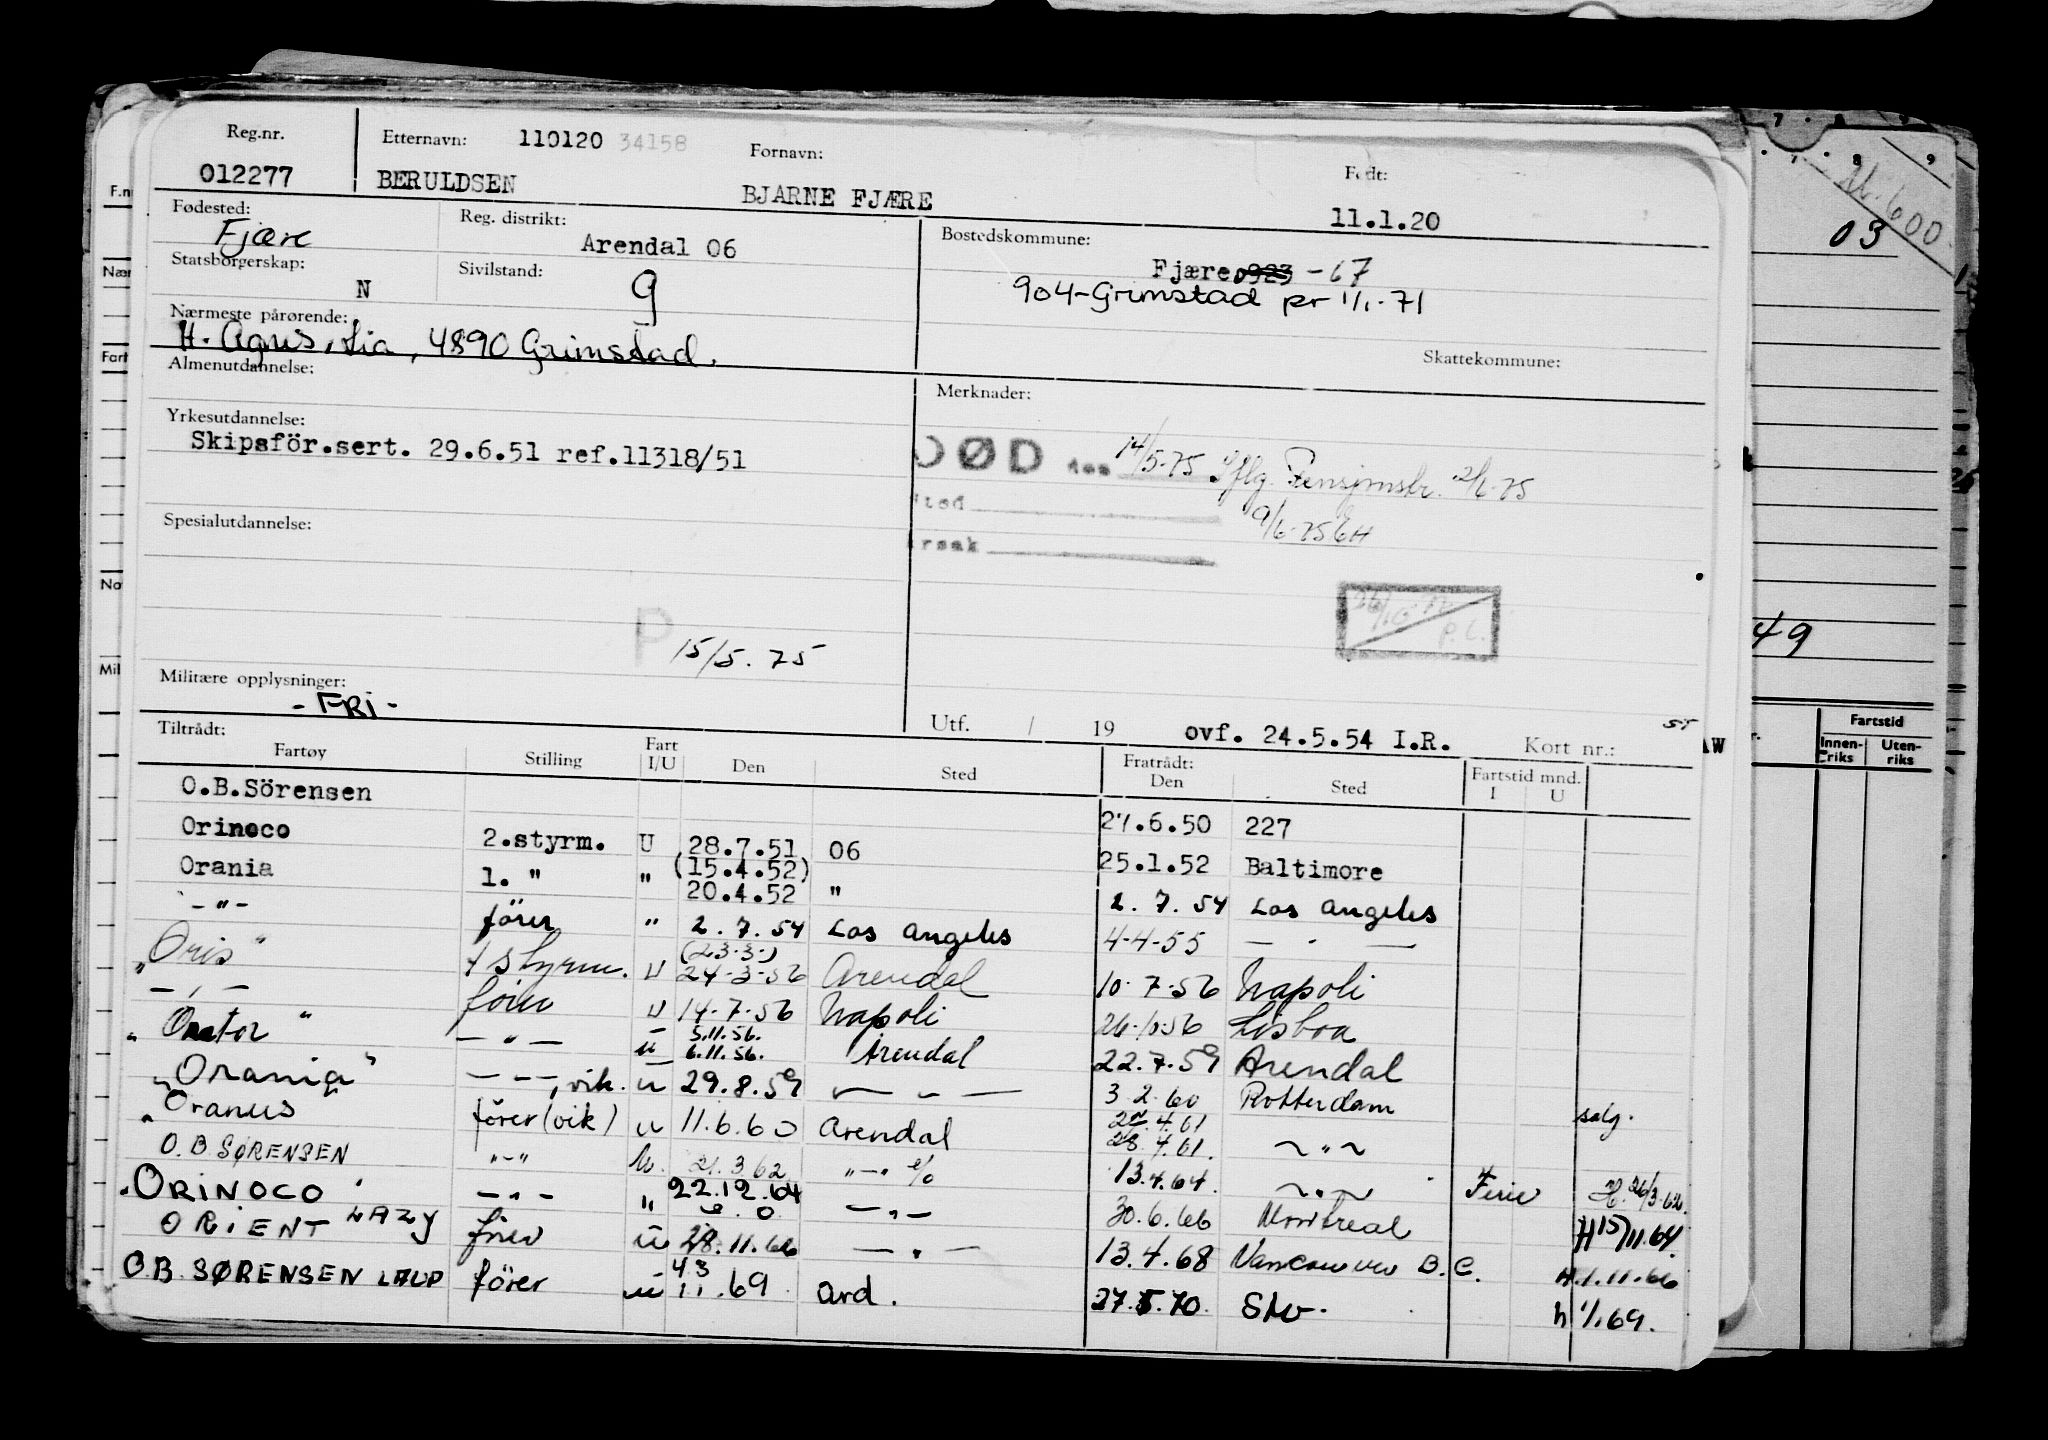 Reg.nr. Etternavn: 110120 34158 Fornavn: Født:
012277 BERULDSEN BJARNE FJÆRE 11.1.20
Fødested: Reg. distrikt: Bostedskommune:
Fjære Arendal 06 Fjære 0923 -67
Statsborgerskap: Sivilstand:
N g 904-Grimstad pr 1/1-71
Nærmeste pårørende:
H. Agnis, Lia, 4890 Grimstad.
Skattekommune:
Almenutdannelse: Merknader:
Yrkesutdannelse:
Skipsför.sert. 29.6.51 ref.11318/51
DØD den 14/5-75 iflg. Pensjonstr. 2/6-75
sted 9/6-75
Årsak
Spesialutdannelse:
P 15/5.75
Militære opplysninger:
- FRI -
Utf. / 19 ovf. 24.5.54 I.R. Kort nr.:
Tiltrådt: Fratrådt:
Fartøy Stilling Fart I/U Den Sted Den Sted Fartstid mnd. I U
O.B.Sörensen 27.6.50 227
Orinoco 2.styrm. U 28.7.51 06 25.1.52 Baltimore
Orania 1. " " (15.4.52) 20.4.52 " 2.7.54 Los Angeles
- " - förer " 2.7.54 Los Angeles 4-4-55 — " —
"Oris" 1 styrm. U (23-3-) 24-3-56 Arendal 10-7-56 Napoli
— " — förer U 14-7-56 Napoli 26-10-56 Lisboa
"Orator" — " — U 5.11.56. 6.11.56. Arendal 22.7.59 Arendal
"Orania" — " —, vik. U 29.8.59 — " — 3.2.60 Rotterdam
"Oranus förer (vik) U 11.6.60 Arendal 28.4.61 ~ " ~ salg.
O.B SØRENSEN "-" U. 21.3.62 "-" 13.4.64. ~ " ~ Ferie H. 26/3-62.
"ORINOCO" - " - " 22.12.64 - " - 30.6.66 Montreal H 15/11.64.
ORIENT LAZY förer U 28.11.66 — " — 13.4.68 Vancouver B.C. H.1.11.66
O.B. SØRENSEN LAUP förer U 11.69 Ard. 27.5.70. h 1/1.69.
F.nr
7 8 9
03
49
Fartstid
Innenriks Utenriks